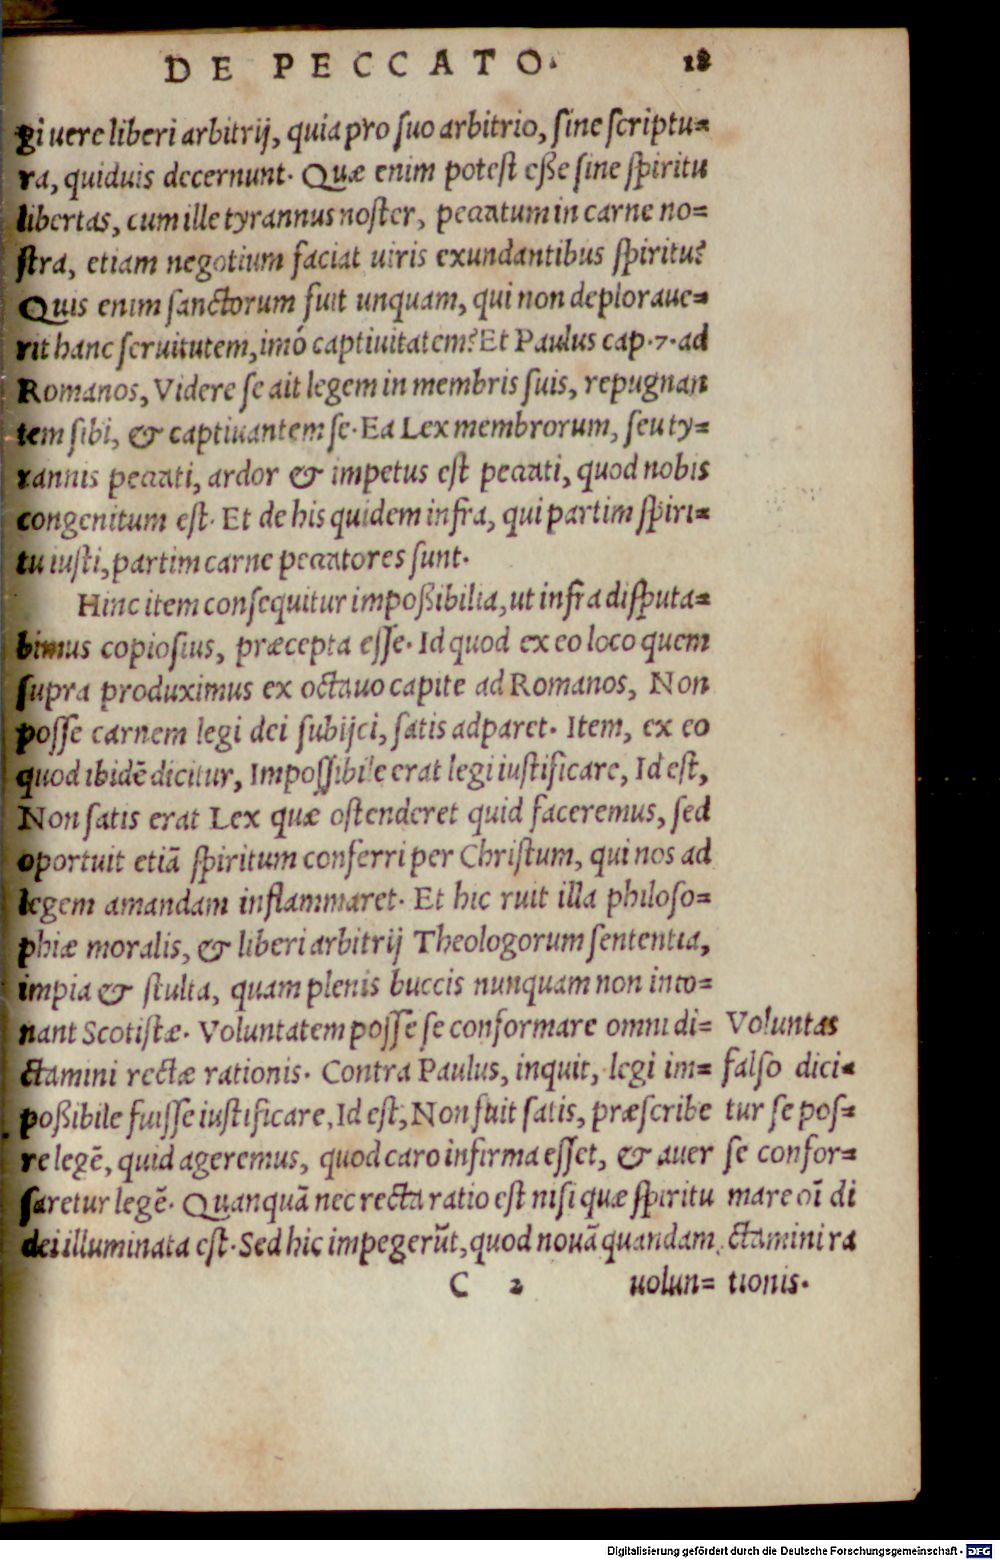 DE PECCATO. 18
gi uere liberi arbitrij, quia pro suo arbitrio, sine scriptu=
ra, quiduis decernunt. Quæ enim potest eße sine spiritu
libertas, cum ille tyrannus noster, peccatum in carne no=
stra, etiam negotium faciat uiris exundantibus spiritu?
Quis enim sanctorum fuit unquam, qui non deploraue=
rit hanc seruitutem, imó captiuitatem? Et Paulus cap. 7. ad
Romanos, Videre se ait legem in membris suis, repugnan
tem sibi, & captiuantem se. Ea Lex membrorum, seu ty=
rannis peccati, ardor & impetus est peccati, quod nobis
congenitum est. Et de his quidem infra, qui partim spiri=
tu iusti, partim carne peccatores sunt.
Hinc item consequitur impoßibilia, ut infra disputa=
bimus copiosius, præcepta esse. Id quod ex eo loco quem
supra produximus ex octauo capite ad Romanos, Non
posse carnem legi dei subijci, satis adparet. Item, ex eo
quod ibidē dicitur, Impossibile erat legi iustificare, Id est,
Non satis erat Lex quæ ostenderet quid faceremus, sed
oportuit etiā spiritum conferri per Christum, qui nos ad
legem amandam inflammaret. Et hic ruit illa philoso=
phiæ moralis, & liberi arbitrij Theologorum sententia,
impia & stulta, quam plenis buccis nunquam non into=
nant Scotistæ. Voluntatem posse se conformare omni di=
ctamini rectæ rationis. Contra Paulus, inquit, legi im=
poßibile fuisse iustificare, Id est, Non fuit satis, præscribe
re legē, quid ageremus, quod caro infirma esset, & auer
saretur legē. Quanquā nec recta ratio est nisi quæ spiritu
dei illuminata est. Sed hic impegerūt, quod nouā quandam
C 2 uolun=
Voluntas
falso dici=
tur se pos=
se confor=
mare oī di
ctamini ra
tionis.
Digitalisierung gefördert durch die Deutsche Forschungsgemeinschaft - DFG